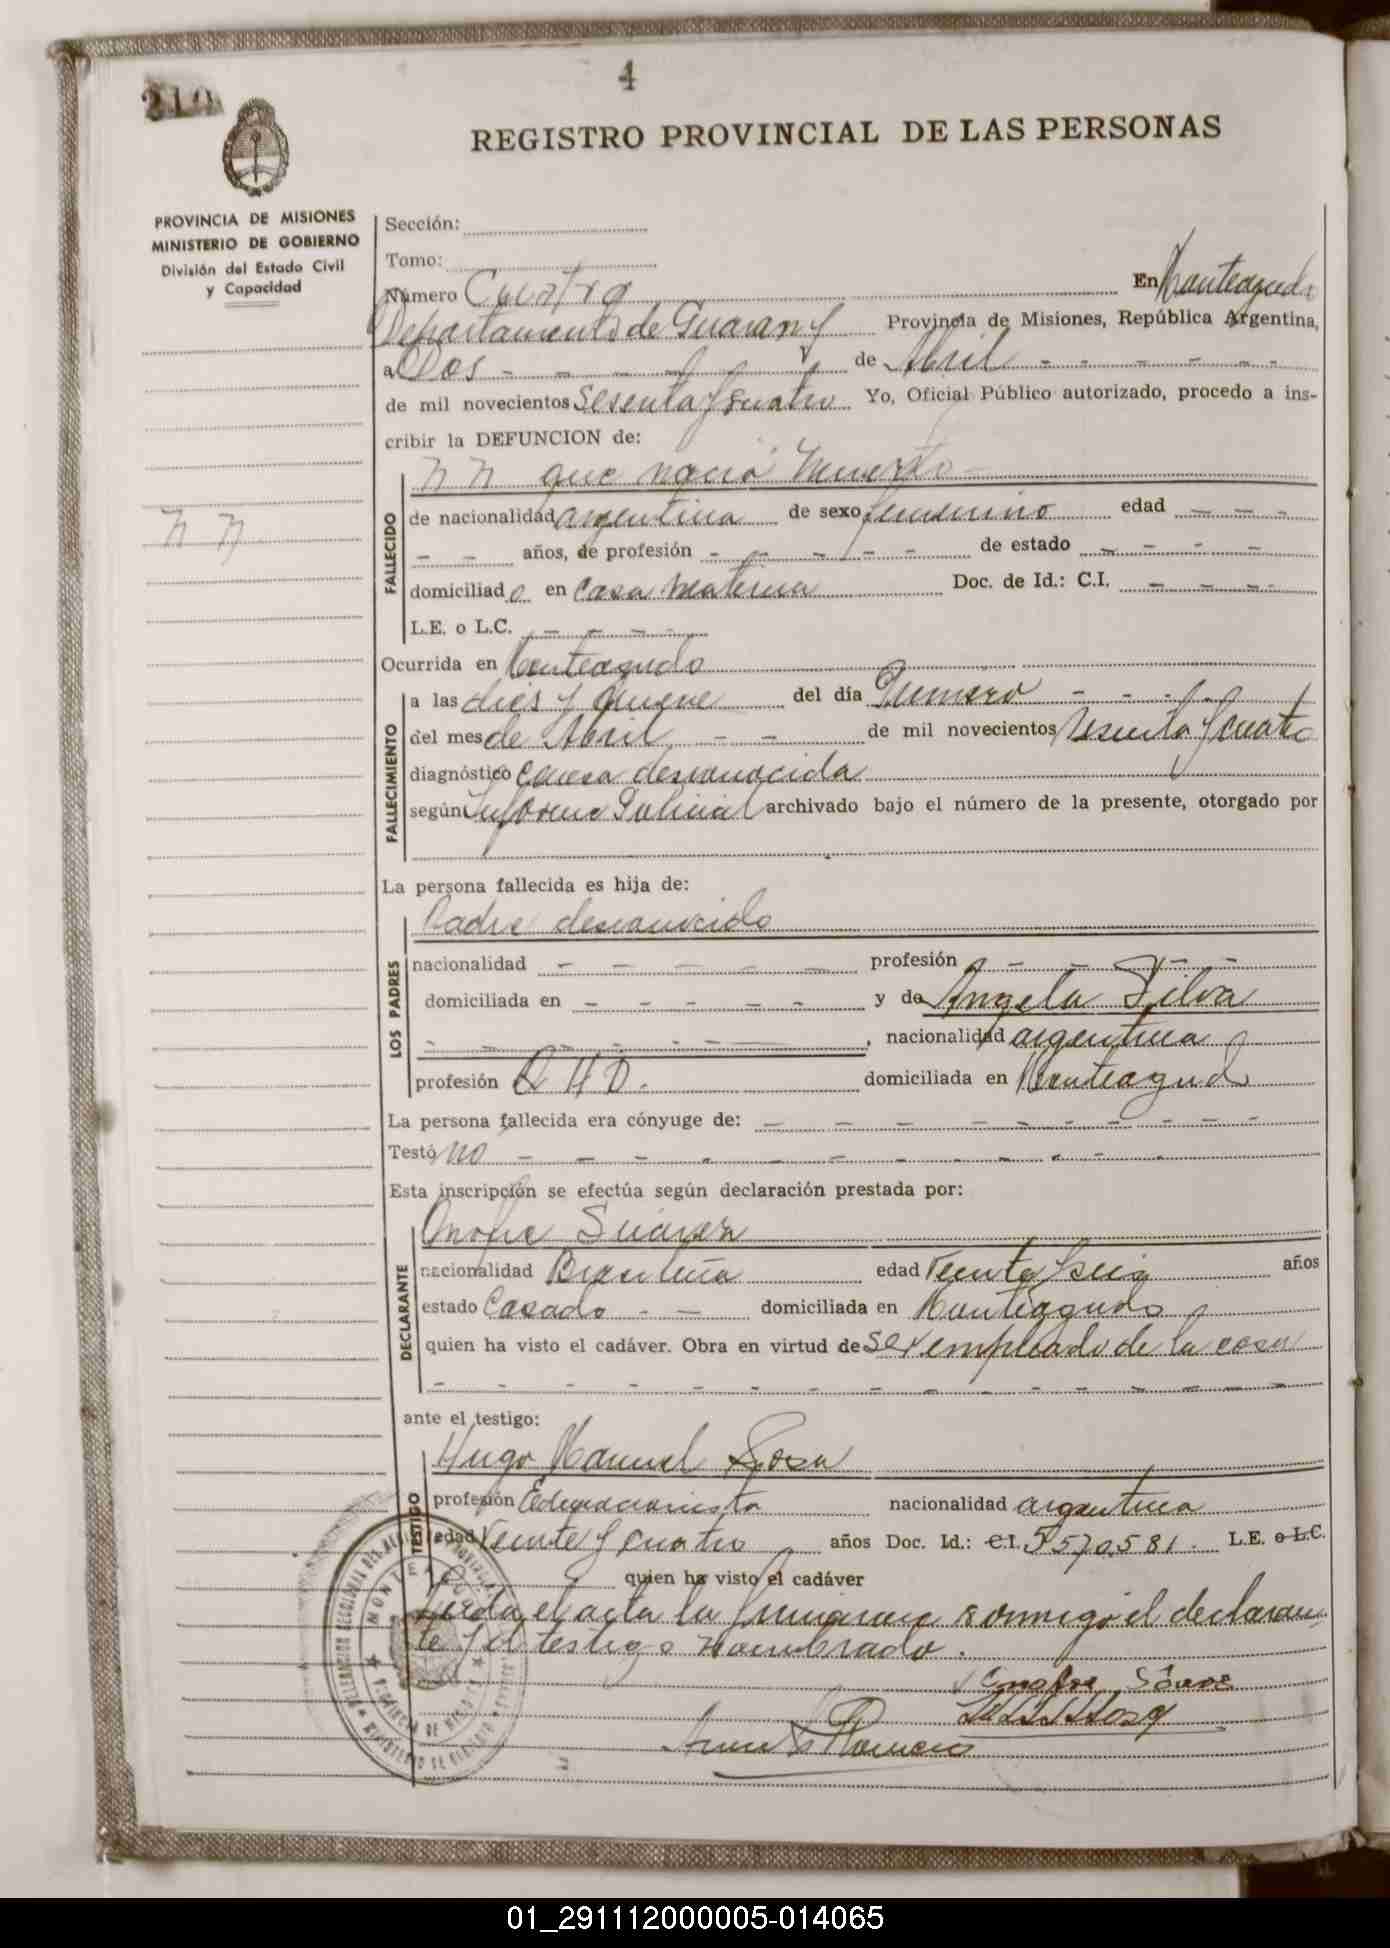 210
4
REGISTRO PROVINCIAL DE LAS PERSONAS
PROVINCIA DE MISIONES
MINISTERIO DE GOBIERNO
División del Estado Civil
y Capacidad
N N
Sección:
Tomo:
Número Cuatro En Monteagudo
Departamento de Guarany Provincia de Misiones, República Argentina,
a Dos - - - - - de Abril - - - - - -
de mil novecientos Sesenta y cuatro Yo, Oficial Público autorizado, procedo a ins-
cribir la DEFUNCION de:
FALLECIDO
N N que nació muerto -
de nacionalidad argentina de sexo femenino edad - - -
- - años, de profesión - - - - - de estado - - - -
domiciliado en casa materna Doc. de Id.: C.I. - - - -
L.E. o L.C. - - - -
Ocurrida en Monteagudo
FALLECIMIENTO
a las dies y nueve del día Primero - - - -
del mes de Abril - - de mil novecientos sesenta y cuatro
diagnóstico causa desconocida
según Informe Policial archivado bajo el número de la presente, otorgado por
La persona fallecida es hija de:
LOS PADRES
Padre desconocido
nacionalidad - - - - - profesión - - - - -
domiciliada en - - - - - y de Angela Silva
- - - - - , nacionalidad argentina
profesión Q H D. domiciliada en Monteagudo
La persona fallecida era cónyuge de: - - - - - - - - - -
Testó no - - - - - - - - - -
Esta inscripción se efectúa según declaración prestada por:
DECLARANTE
Onofre Suárez
nacionalidad Brasileña edad Veinte y seis años
estado Casado - - domiciliada en Monteagudo
quien ha visto el cadáver. Obra en virtud de ser empleado de la casa
- - - - - - - - - - - - -
ante el testigo:
TESTIGO
Hugo Manuel Sosa
profesión Educacionista nacionalidad argentina
edad Veinte y cuatro años Doc. Id.: C.I. 5570.581. L.E. o L.C.
quien ha visto el cadáver
Leida el acta la firman conmigo el declaran-
te y el testigo nombrado.
Onofre
Romero
01_291112000005-014065